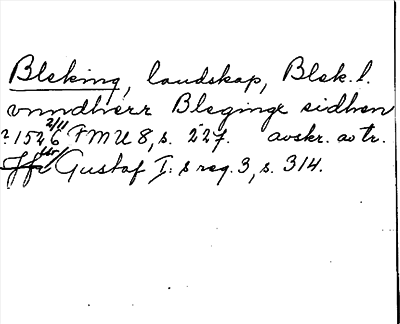 Bleking, landskap, Blek. l.
vnndherr Bleginge sidhen
? 1526 2/11 FMU 8, s. 227. avskr. av tr.
Gustaf I:s reg. 3, s. 314.